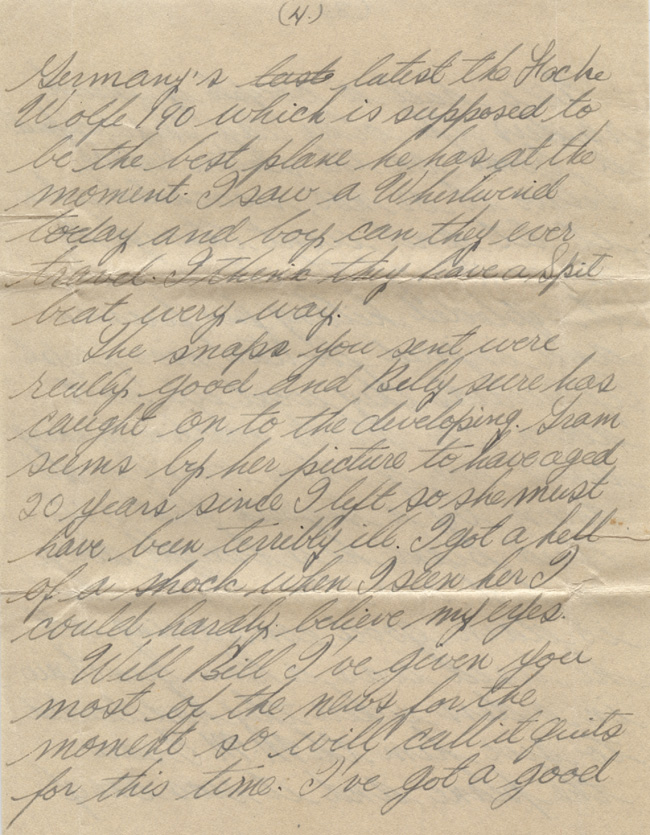 (4.)
Germany's taste latest the Focke
Wolfe 190 which is supposed to
be the best plane he has at the
moment. I saw a Whirlwind
today and boy can they ever
travel. I think they have a Spit
beat every way.
The snaps you sent were
really good and Billy sure has
caught on to the developing. Gram
seems by her picture to have aged
20 years since I left so she must
have been terribly ill. I got a hell
of a shock when I seen her I
could hardly believe my eyes.
Will Bill I've given you
most of the news for the
moment so will call it quits
for this time. I've got a good